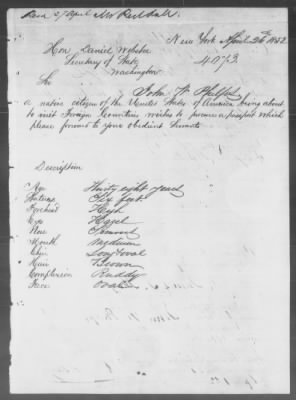 New York April 26th 1852
Hon Daniel Webster
Secretary of State
4073
Washington
Sir
John W.
a native citizen of the United States of America being about
to visit Foreign Countries wishes to procure a passport which
please forward to your obedient Servant
Description
Age Thirty eight years
Stature Six feet
Forehead High
Eyes Hazel
Nose
Mouth Medium
Chin Long oval
Hair Brown
Complexion Ruddy
Face Oval